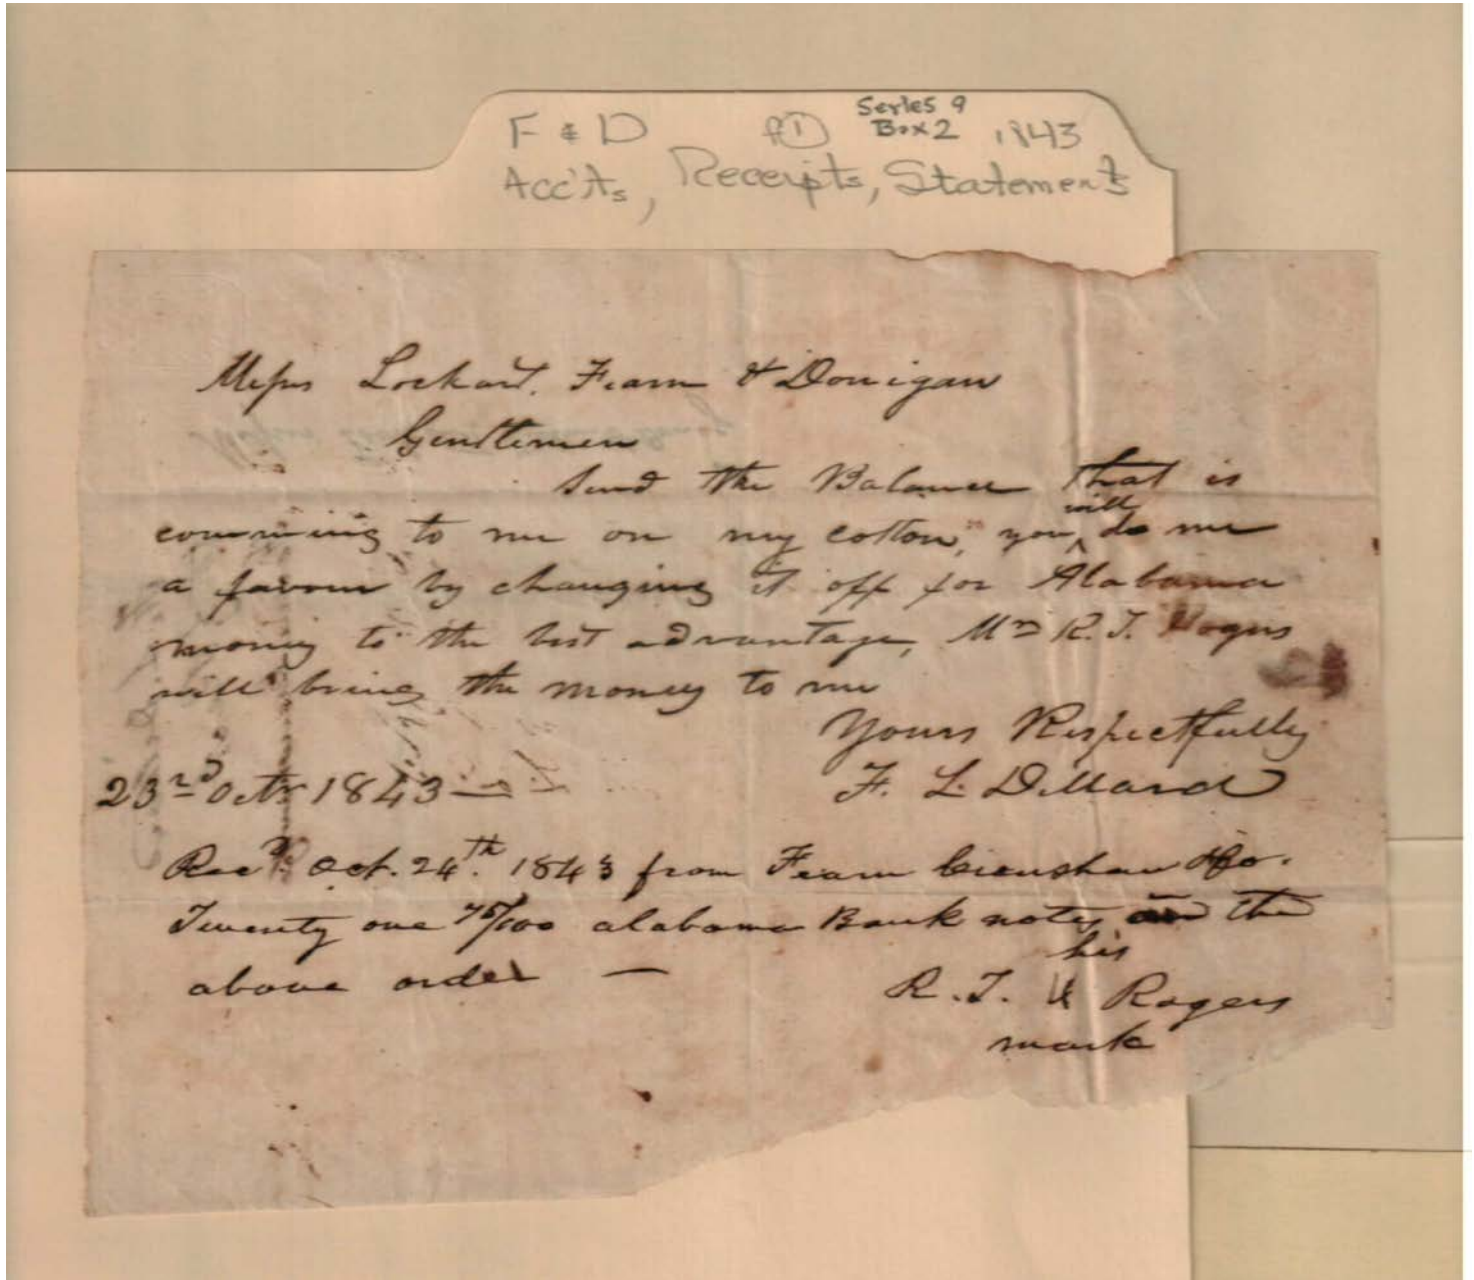 F & D f① Series 9
Box 2 1843
Acc'ts, Receipts, Statements
Messrs Lockart, Fearn & Donigan
Gentlemen
Send the Balance that is
comming to me on my cotton, you will do me
a favour by changing it off for Alabama
money to the best advantage, Mr R. T. Rogers
will bring the money to me
Yours Respectfully
23rd Octr 1843 F. L. Dillard
Recd. Oct. 24th. 1843 from Fearn Crenshaw & Co.
Twenty one 75/100 alabama Bank notes on the
above order —
his
R. T. X Rogers
mark